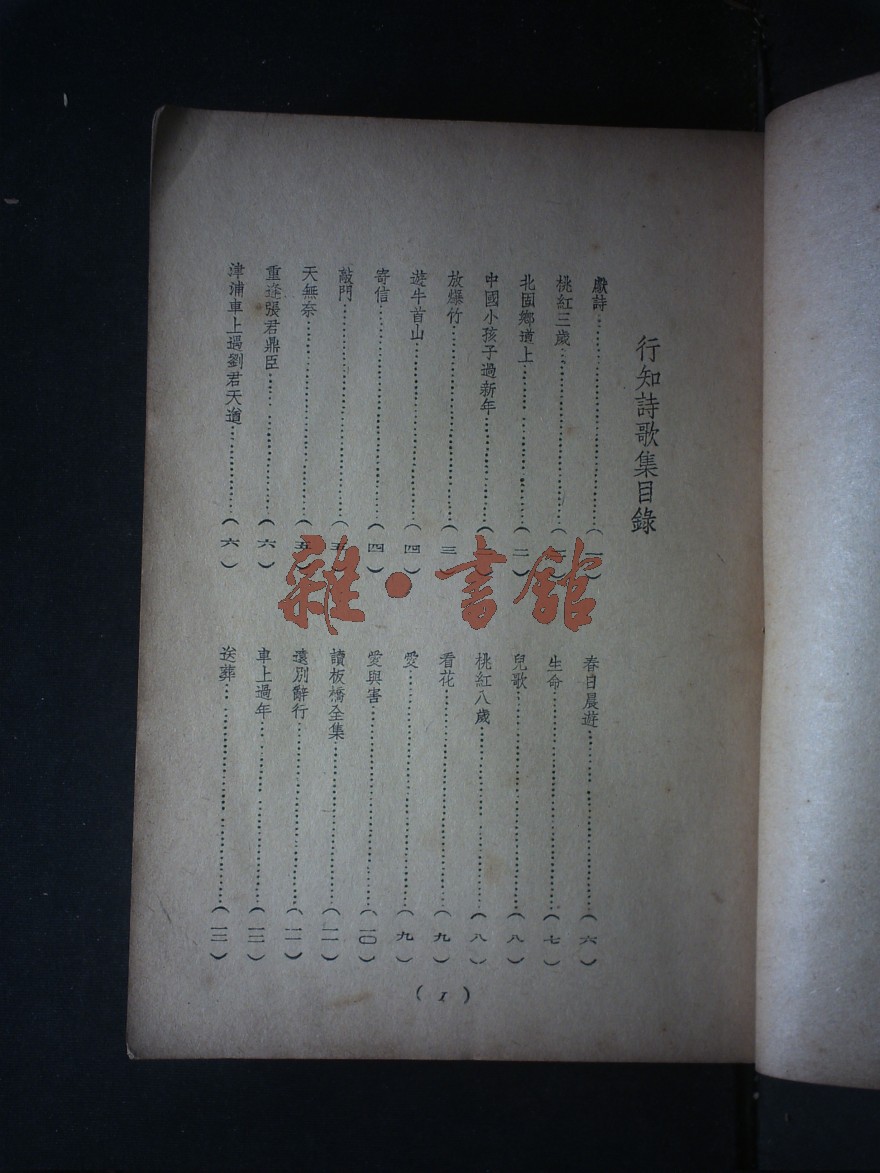 行知詩歌集目錄
獻詩……(一)
桃紅三歲……(一)
北固鄉道上……(二)
中國小孩子過新年……(
放爆竹……(三
遊牛首山……(四)
寄信……(四)
敲門……(五)
天無奈……(五)
重逢張君鼎臣……(六)
津浦車上遇劉君天道……(六)
春日晨遊……(六)
生命……(七)
兒歌……(八)
桃紅八歲……(八)
看花……(九)
愛……(九)
愛與害……(一〇)
讀板橋全集……(一一)
遠別辭行……(一一)
車上過年……(一二)
送葬……(一三)
(I)
雜·書館